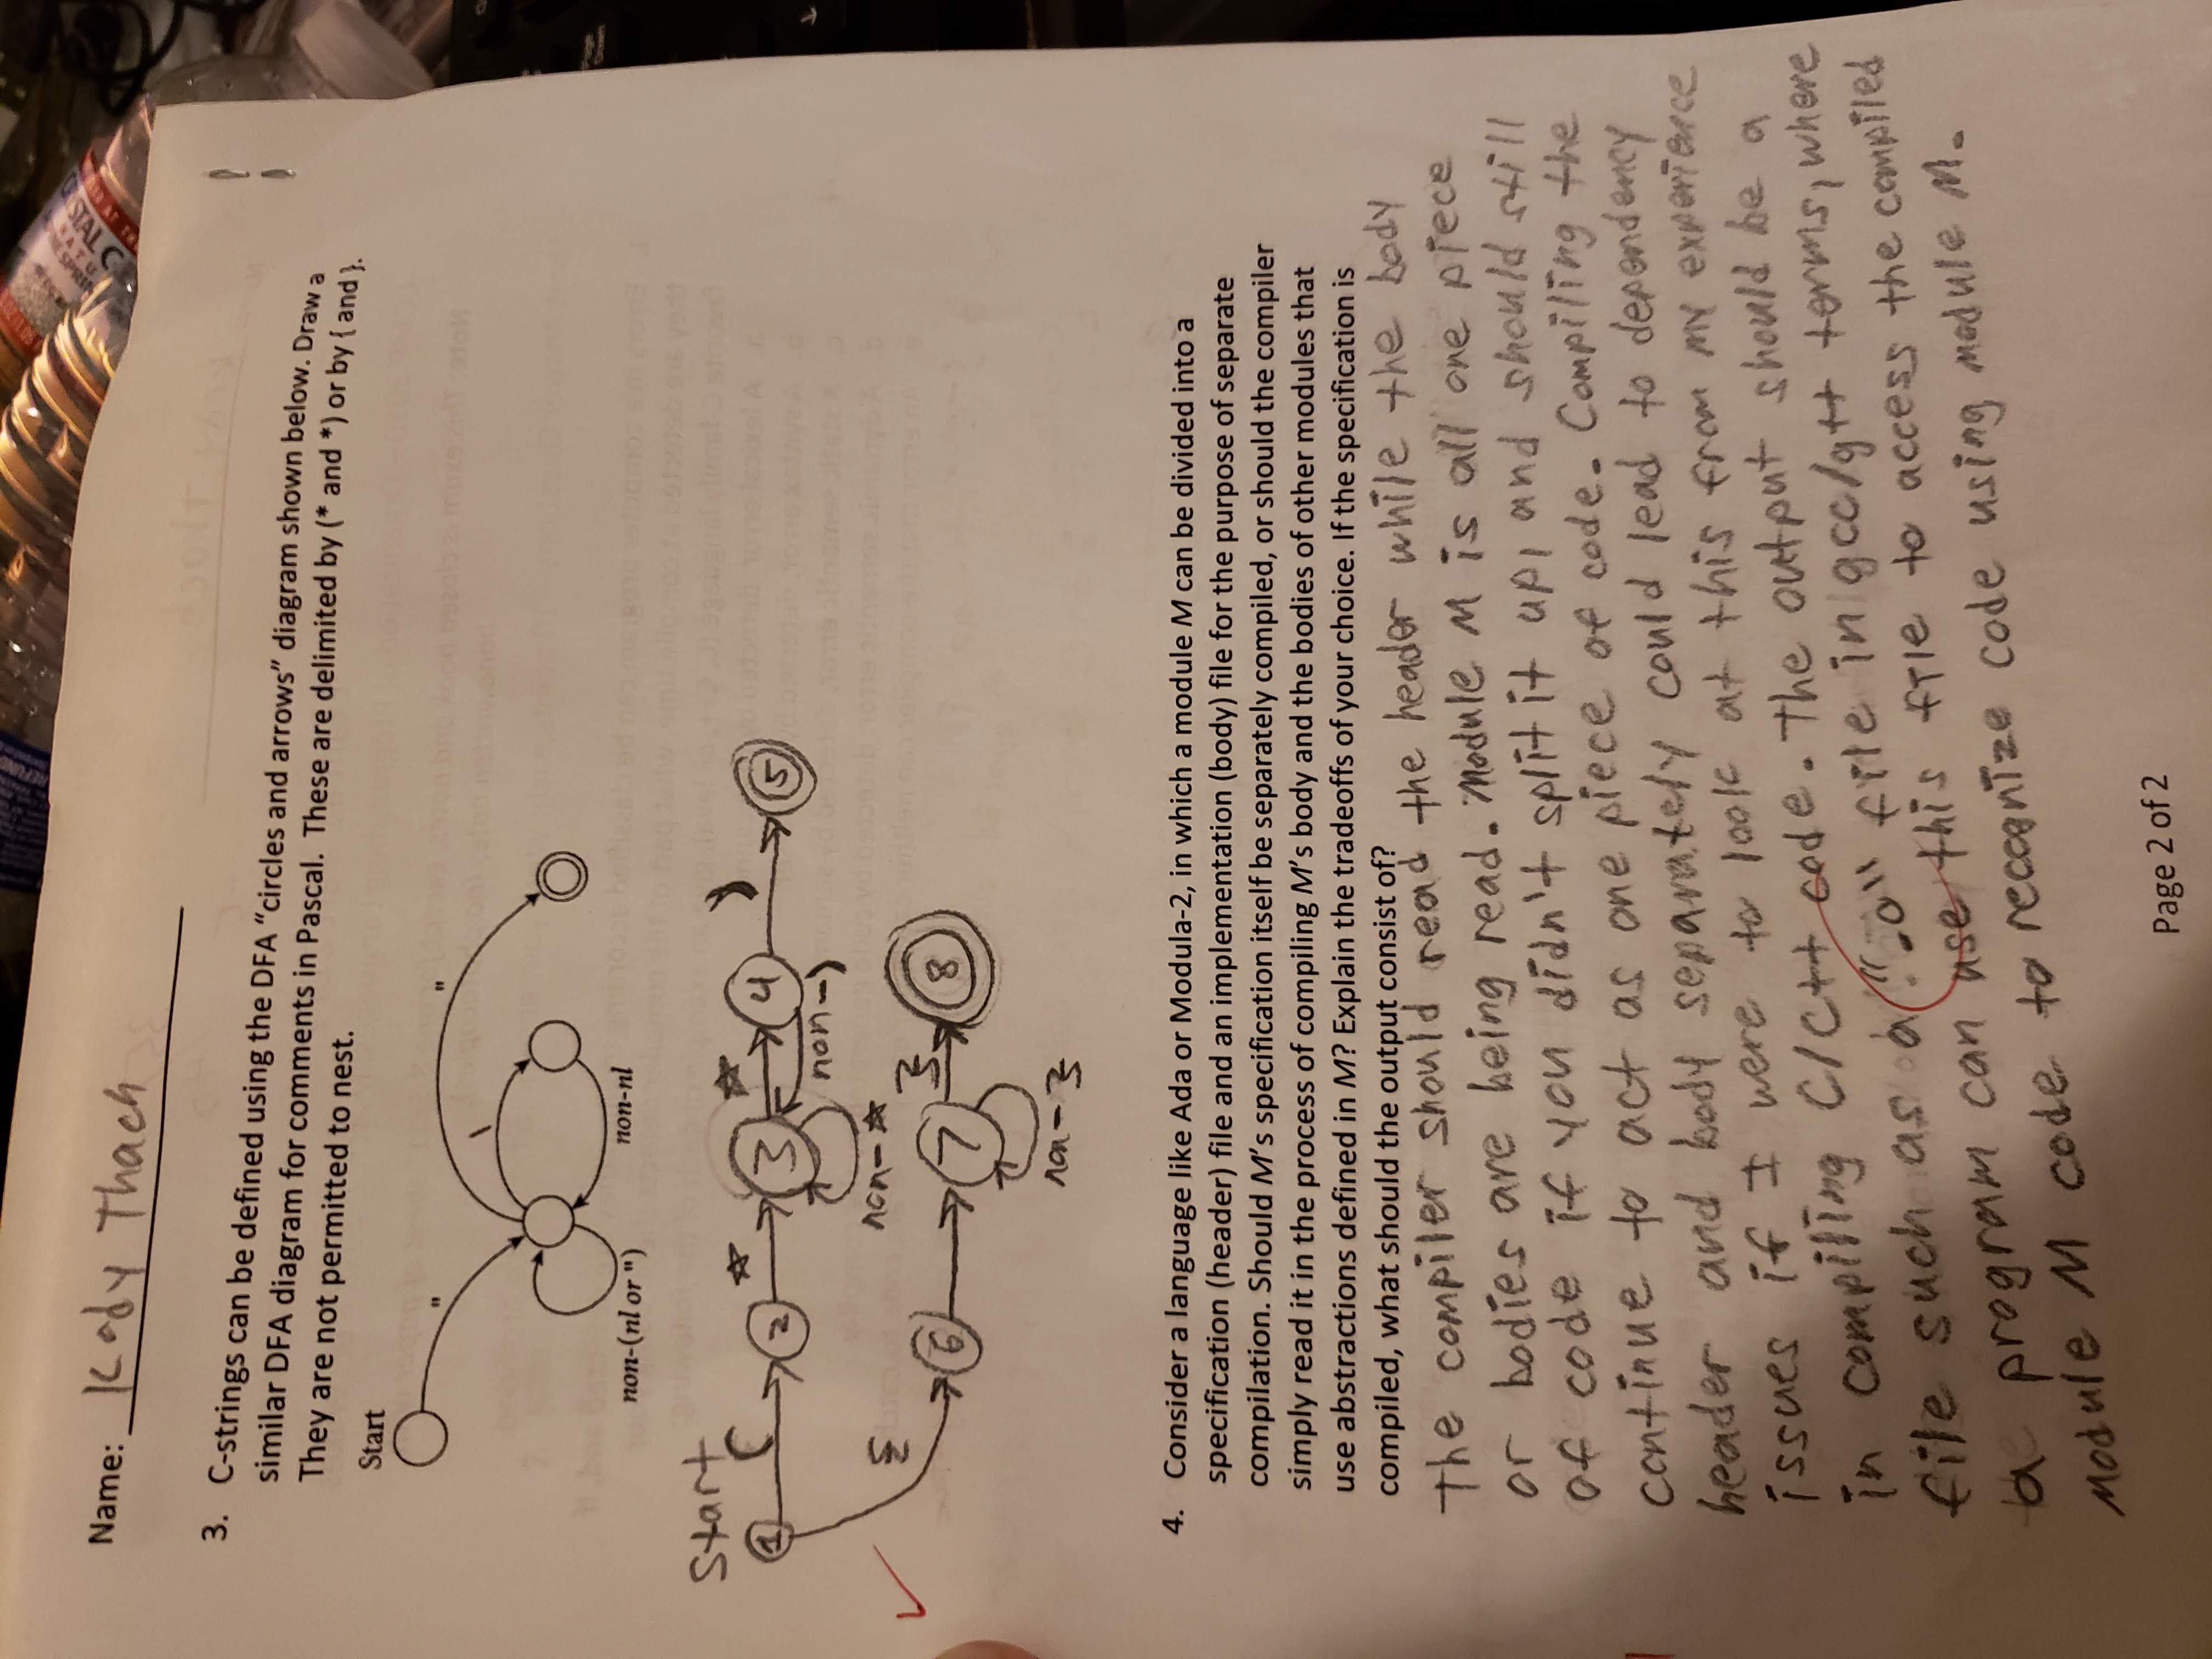 Name: Kody Thach
3. C-strings can be defined using the DFA "circles and arrows" diagram shown below. Draw a
similar DFA diagram for comments in Pascal. These are delimited by (* and *) or by { and }.
They are not permitted to nest.
Start
"
"
\
non-(nl or ")
non-nl
Start
( * * )
1 2 3 4 5
non-)
non-*
{ }
6 7 8
non-}
4. Consider a language like Ada or Modula-2, in which a module M can be divided into a
specification (header) file and an implementation (body) file for the purpose of separate
compilation. Should M's specification itself be separately compiled, or should the compiler
simply read it in the process of compiling M's body and the bodies of other modules that
use abstractions defined in M? Explain the tradeoffs of your choice. If the specification is
compiled, what should the output consist of?
The compiler should read the header while the body
or bodies are being read. Module M is all one piece
of code if you didn't split it up, and should still
continue to act as one piece of code. Compiling the
header and body separately could lead to dependency
issues if I were to look at this from my experience
in compiling C/C++ code. The output should be a
file such as a ".o" file in gcc/g++ terms, where
a program can use this file to access the compiled
Module M code to recognize code using module M.
Page 2 of 2